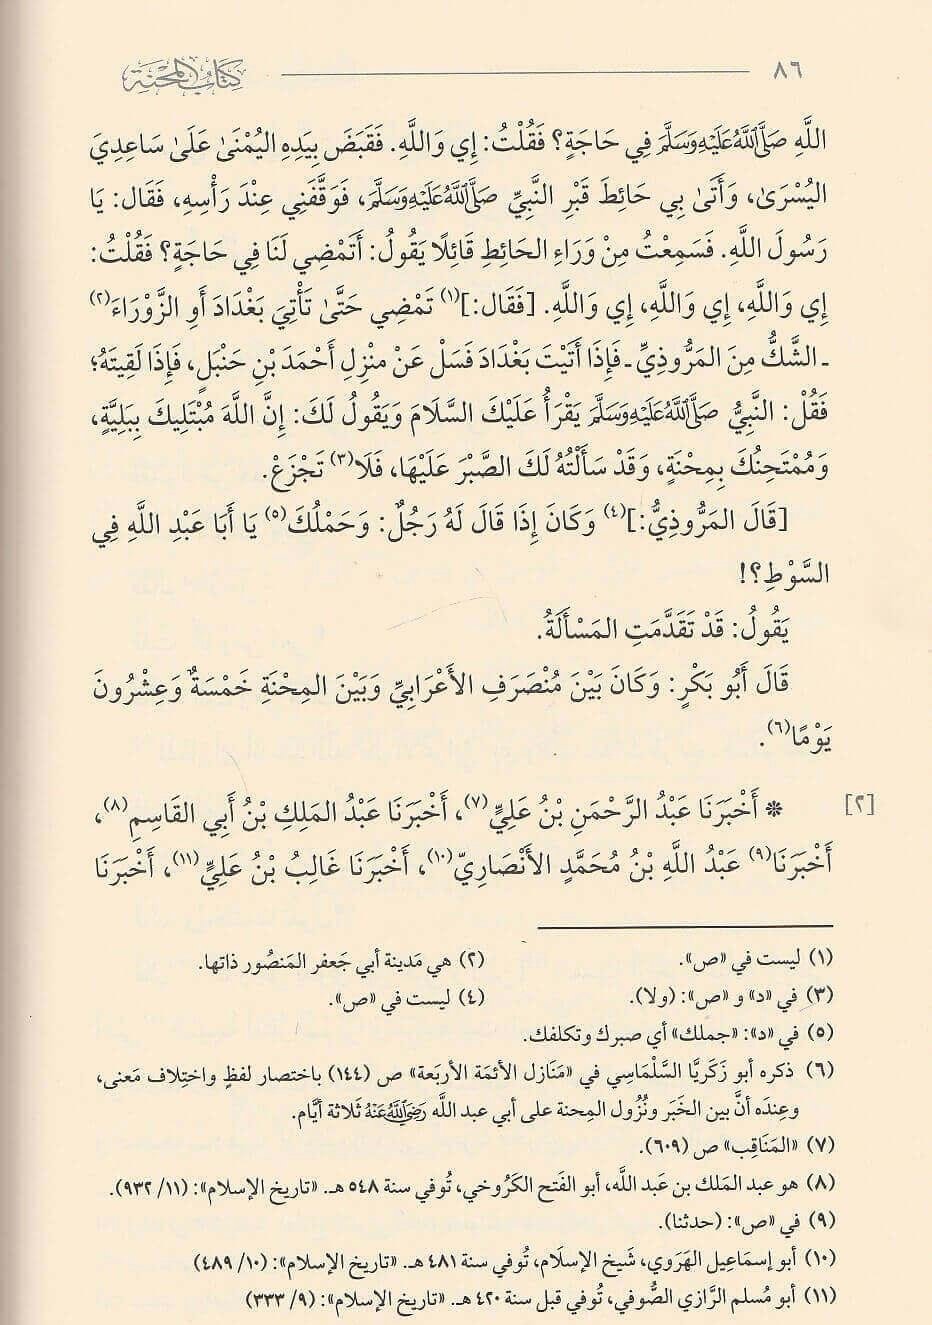 ٨٦ كِتَابُ المِحْنَةِ
اللَّهِ صَلَّى اللَّهُ عَلَيْهِ وَسَلَّمَ فِي حَاجَةٍ؟ فَقُلْتُ: إِي وَاللَّهِ. فَقَبَضَ بِيَدِهِ اليُمْنَىٰ عَلَىٰ سَاعِدِيَ
اليُسْرَىٰ، وَأَتَىٰ بِي حَائِطَ قَبْرِ النَّبِيِّ صَلَّى اللَّهُ عَلَيْهِ وَسَلَّمَ، فَوَقَّفَنِي عِنْدَ رَأْسِهِ، فَقَال: يَا
رَسُولَ اللَّهِ. فَسَمِعْتُ مِنْ وَرَاءِ الحَائِطِ قَائِلًا يَقُولُ: أَتَمْضِي لَنَا فِي حَاجَةٍ؟ فَقُلْتُ:
إِي وَاللَّهِ، إِي وَاللَّهِ، إِي وَاللَّهِ. [فَقَال:](١) تَمْضِي حَتَّىٰ تَأْتِيَ بَغْدَادَ أَوِ الزَّوْرَاءَ(٢)
ـ الشَّكُّ مِنَ المَرُّوذِيِّ ـ فَإِذَا أَتَيْتَ بَغْدَادَ فَسَلْ عَنْ مَنْزِلِ أَحْمَدَ بْنِ حَنْبَلٍ، فَإِذَا لَقِيتَهُ؛
فَقُلْ: النَّبِيُّ صَلَّى اللَّهُ عَلَيْهِ وَسَلَّمَ يَقْرَأُ عَلَيْكَ السَّلَامَ وَيَقُولُ لَكَ: إِنَّ اللَّهَ مُبْتَلِيكَ بِبَلِيَّةٍ،
وَمُمْتَحِنُكَ بِمِحْنَةٍ، وَقَدْ سَأَلْتُهُ لَكَ الصَّبْرَ عَلَيْهَا، فَلَا(٣) تَجْزَعْ.
[قَالَ المَرُّوذِيُّ:](٤) وَكَانَ إِذَا قَالَ لَهُ رَجُلٌ: وَحَمْلُكَ(٥) يَا أَبَا عَبْدِ اللَّهِ فِي
السَّوْطِ؟!
يَقُولُ: قَدْ تَقَدَّمَتِ المَسْأَلَةُ.
قَالَ أَبُو بَكْرٍ: وَكَانَ بَيْنَ مُنْصَرَفِ الأَعْرَابِيِّ وَبَيْنَ المِحْنَةِ خَمْسَةٌ وَعِشْرُونَ
يَوْمًا(٦).
[٢] * أَخْبَرَنَا عَبْدُ الرَّحْمَنِ بْنُ عَلِيٍّ(٧)، أَخْبَرَنَا عَبْدُ المَلِكِ بْنُ أَبِي القَاسِمِ(٨)،
أَخْبَرَنَا(٩) عَبْدُ اللَّهِ بْنُ مُحَمَّدٍ الأَنْصَارِيّ(١٠)، أَخْبَرَنَا غَالِبُ بْنُ عَلِيٍّ(١١)، أَخْبَرَنَا
(١) ليست في «ص». (٢) هي مَدينة أبي جَعفر المَنصُور ذاتها.
(٣) في «د» و «ص»: (ولا). (٤) ليست في «ص».
(٥) في «د»: «جملك» أي صبرك وتكلفك.
(٦) ذكره أبو زَكَريَّا السَّلْمَاسِي في «مَنَازل الأئمَة الأربَعة» ص (١٤٤) باختصار لفظٍ واختِلاف مَعنى،
وعِندَه أنَّ بين الخَبَر ونُزُول المِحنة على أبي عبد الله رَضِيَ اللَّهُ عَنْهُ ثَلاثة أيَّام.
(٧) «المَنَاقِب» ص (٦٠٩).
(٨) هو عبد المَلك بن عَبد الله، أبو الفَتح الكَرُوخي، تُوفي سنة ٥٤٨ هـ. «تاريخ الإسلام»: (١١/ ٩٣٢).
(٩) في «ص»: (حدثنا).
(١٠) أبو إسمَاعِيل الهَرَوي، شَيخ الإسلَام، تُوفي سنة ٤٨١ هـ. «تاريخ الإسلام»: (١٠/ ٤٨٩)
(١١) أبو مُسلم الرَّازي الصُّوفي، تُوفي قبل سنة ٤٢٠ هـ. «تاريخ الإسلام»: (٩/ ٣٣٣)